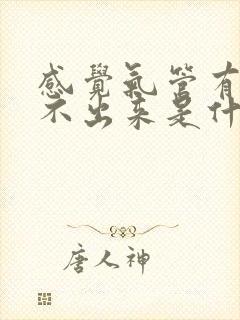 感覺氣管有
不出来是什
唐人神